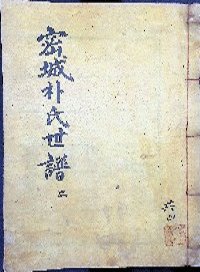 密城朴氏世譜 二